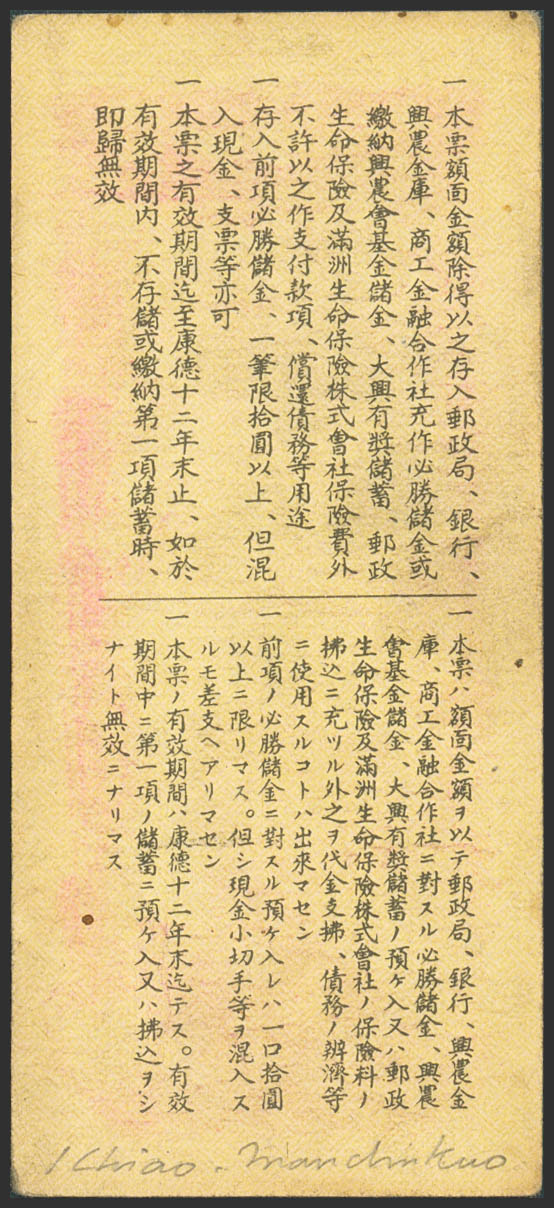 一 本票額面金額除得以之存入郵政局、銀行、
興農金庫、商工金融合作社充作必勝儲金或
繳納興農會基金儲金、大興有獎儲蓄、郵政
生命保險及滿洲生命保險株式會社保險費外
不許以之作支付款項、償還債務等用途
一 存入前項必勝儲金、一筆限拾圓以上、但混
入現金、支票等亦可
一 本票之有效期間迄至康德十二年末止、如於
有效期間內、不存儲或繳納第一項儲蓄時、
即歸無效
一 本票ハ額面金額ヲ以テ郵政局、銀行、興農金
庫、商工金融合作社ニ對スル必勝儲金、興農
會基金儲金、大興有獎儲蓄ノ預ケ入又ハ郵政
生命保險及滿洲生命保險株式會社ノ保險料ノ
拂込ニ充ツル外之ヲ代金支拂、債務ノ辨濟等
ニ使用スルコトハ出來マセン
一 前項ノ必勝儲金ニ對スル預ケ入レハ一口拾圓
以上ニ限リマス。但シ現金小切手等ヲ混入ス
ルモ差支ヘアリマセン
一 本票ノ有效期間ハ康德十二年末迄テス。有效
期間中ニ第一項ノ儲蓄ニ預ケ入又ハ拂込ヲシ
ナイト無效ニナリマス
1 Chiao - Manchukuo